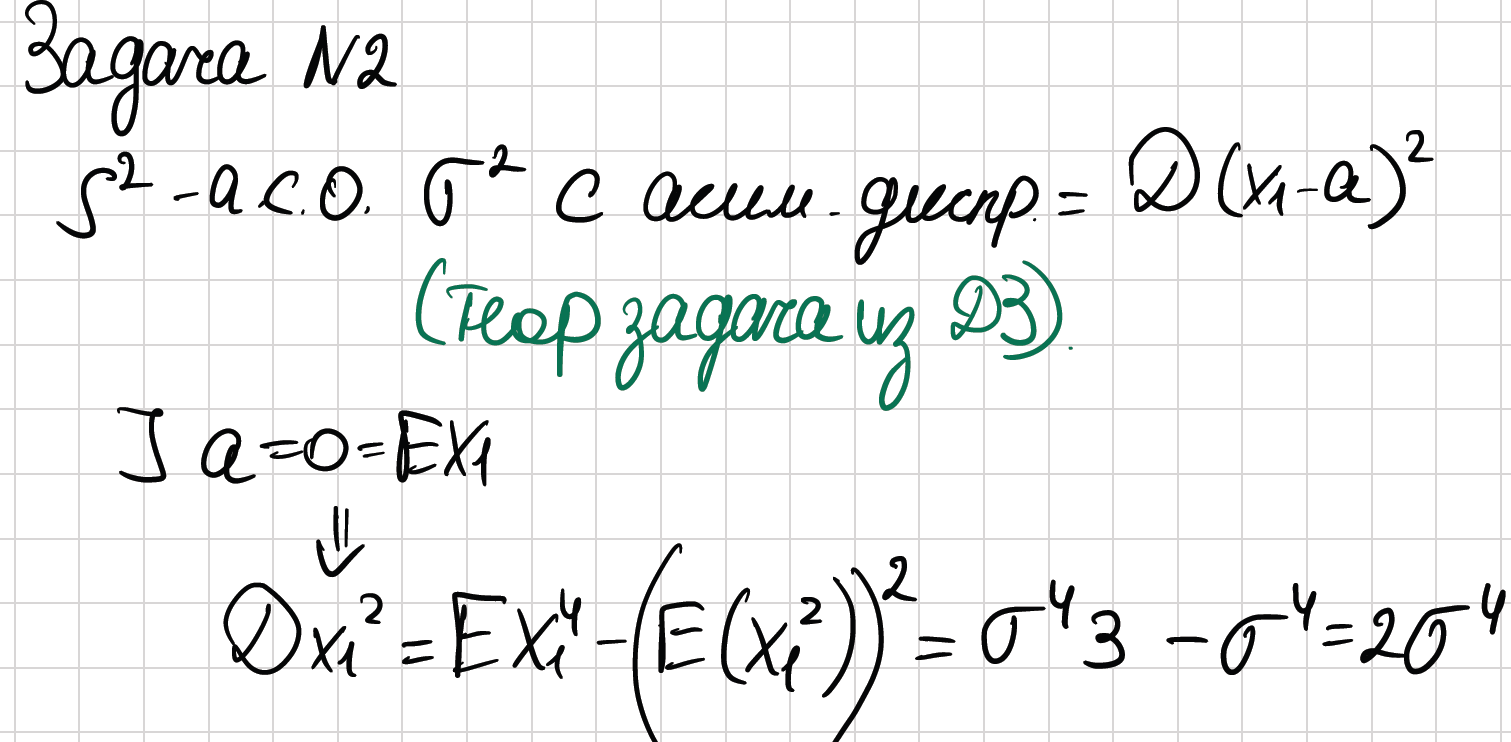 Задача N2
S² - а с.о. σ² с асим. диспр. = D(x₁-a)²
(Теор задача из ДЗ).
] a=0=EX₁
⇓
Dx₁² = EX₁⁴ - (E(x₁²))² = σ⁴3 - σ⁴ = 2σ⁴